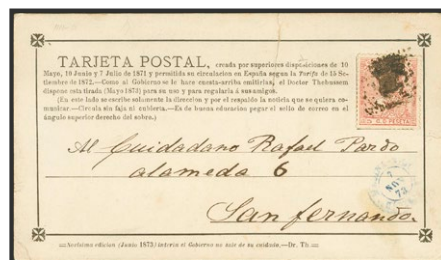 TARJETA POSTAL, creada por superiores disposiciones de 10
Mayo, 10 Junio y 7 Julio de 1871 y permitida su circulacion en España segun la Tarifa de 15 Se-
tiembre de 1872.—Como al Gobierno se le hace cuesta-arriba emitirlas, el Doctor Thebussem
dispone esta tirada (Mayo 1873) para su uso y para regalarla á sus amigos.
(En este lado se escribe solamente la direccion y por el respaldo la noticia que se quiera co-
municar.—Circula sin faja ni cubierta.—Es de buena educacion pegar el sello de correo en el
ángulo superior derecho del sobre.)
Al Cuidadano Rafael Pardo
alameda 6
San fernando.
7
NOV
73
edicion (Junio 1873) ínterin el Gobierno no sale de su .—Dr. Th.